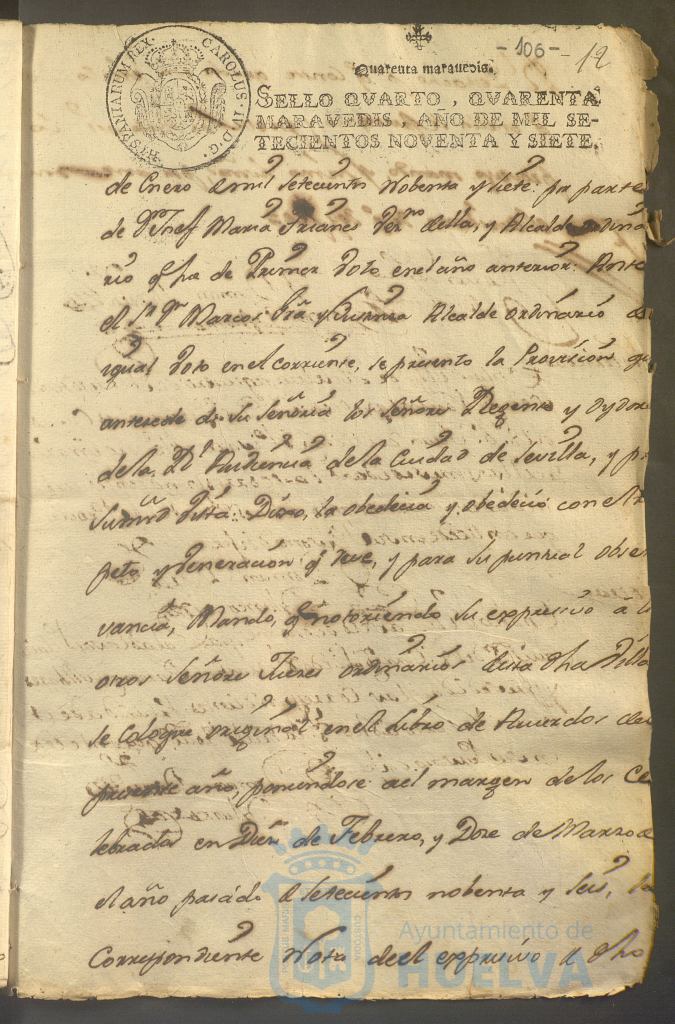 -106- 12
Quarenta marauedis.
SELLO QVARTO, QVARENTA
MARAVEDIS, AÑO DE MIL SE-
TECIENTOS NOVENTA Y SIETE.
CAROLUS·IV·D·G· HISPANIARUM REX·
de Enero de mil Setecientos Nobenta y siete: pr parte
de Dn Josef Maria Trianes Vezno della, y Alcalde ordina
rio qe fue de Primer Voto en el año anterior. Ante
el Sr Dn Marcos Alcalde ordinario de
igual Voto en el corriente, se presento la Provision qe
antesede de Su Señoria los Señores Regente y Oydore
de la Rl Audiencia de la Ciudad de Sevilla, y pr
Su mrd Vista: Dixo, la obedecia y obedecio con el Res
peto y Veneracion qe deve, y para su puntual obser
vancia, Mando, qe notoriendo su expresivo a l
otros Señores Jueces ordinarios desta dha Villa
se coloque original en el Libro de Acuerdos del
presente año, poniendose al margen de los Ce
lebrados en Diez de Febrero, y Doze de Marzo d
el año pasado de Setecientos nobenta y Seis, la
Correspondiente Nota de el expresivo a dho
Ayuntamiento de
HUELVA